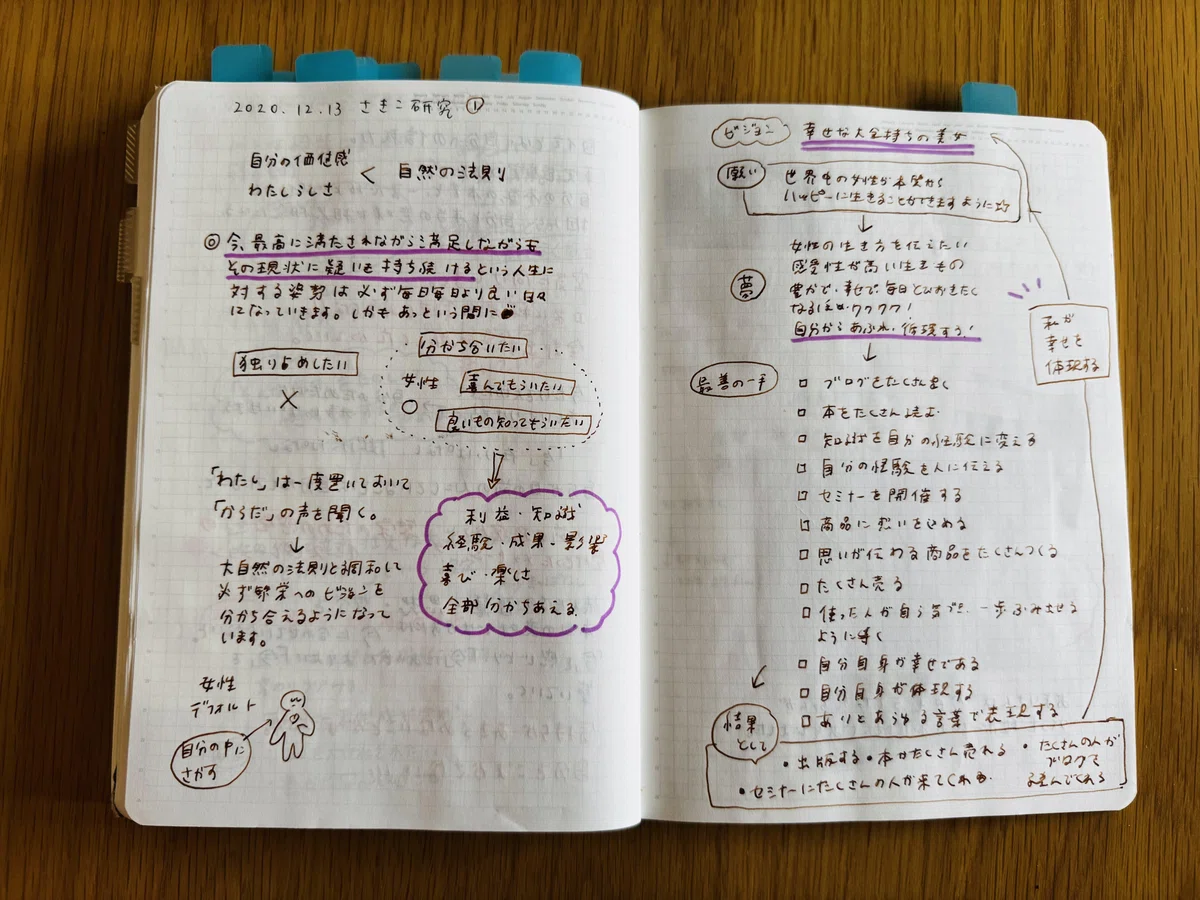 2020.12.13 さきこ研究 ①
自分の価値感
わたしらしさ
< 自然の法則り
◎ 今、最高に満たされながら満足しながらも
その現状に疑いを持ち続けるという人生に
対する姿勢は必ず毎日毎日より良い日々
になっていきます。しかもあっという間に
独り占めしたい
×
分かち合いたい
女性 喜んでもらいたい
○
良いもの知ってもらいたい
「わたし」は一度置いておいて
「からだ」の声を聞く。
↓
大自然の法則と調和して
必ず繁栄へのビジョンを
分かち合えるようになって
います。
利益・知識
経験・成果・影響
喜び・楽しさ
全部分かちあえる。
女性
デフォルト
自分の中に
さがす
ビジョン 幸せな大金持ちの美女
願い
世界中の女性が本質から
ハッピーに生きることができますように
↓
夢
女性の生き方を伝えたい
感受性が高い生きもの
豊かで、幸せで、毎日とびおきたく
なるほどワクワク!
自分からあふれ、体現する!
私が
幸せを
体現する
↓
最善の一手
□ ブログをたくさん書く
□ 本をたくさん読む
□ 知識を自分の経験に変える
□ 自分の経験を人に伝える
□ セミナーを開催する
□ 商品に想いを込める
□ 思いが伝わる商品をたくさんつくる
□ たくさん売る
□ 使った人が自う気づき、一歩ふみ出せる
ように導く
□ 自分自身が幸せである
□ 自分自身が体現する
□ ありとあらゆる言葉で表現する
結果
として
・出版する ・本がたくさん売れる
・たくさんの人が
ブログを
読んでくれる
・セミナーにたくさんの人が来てくれる